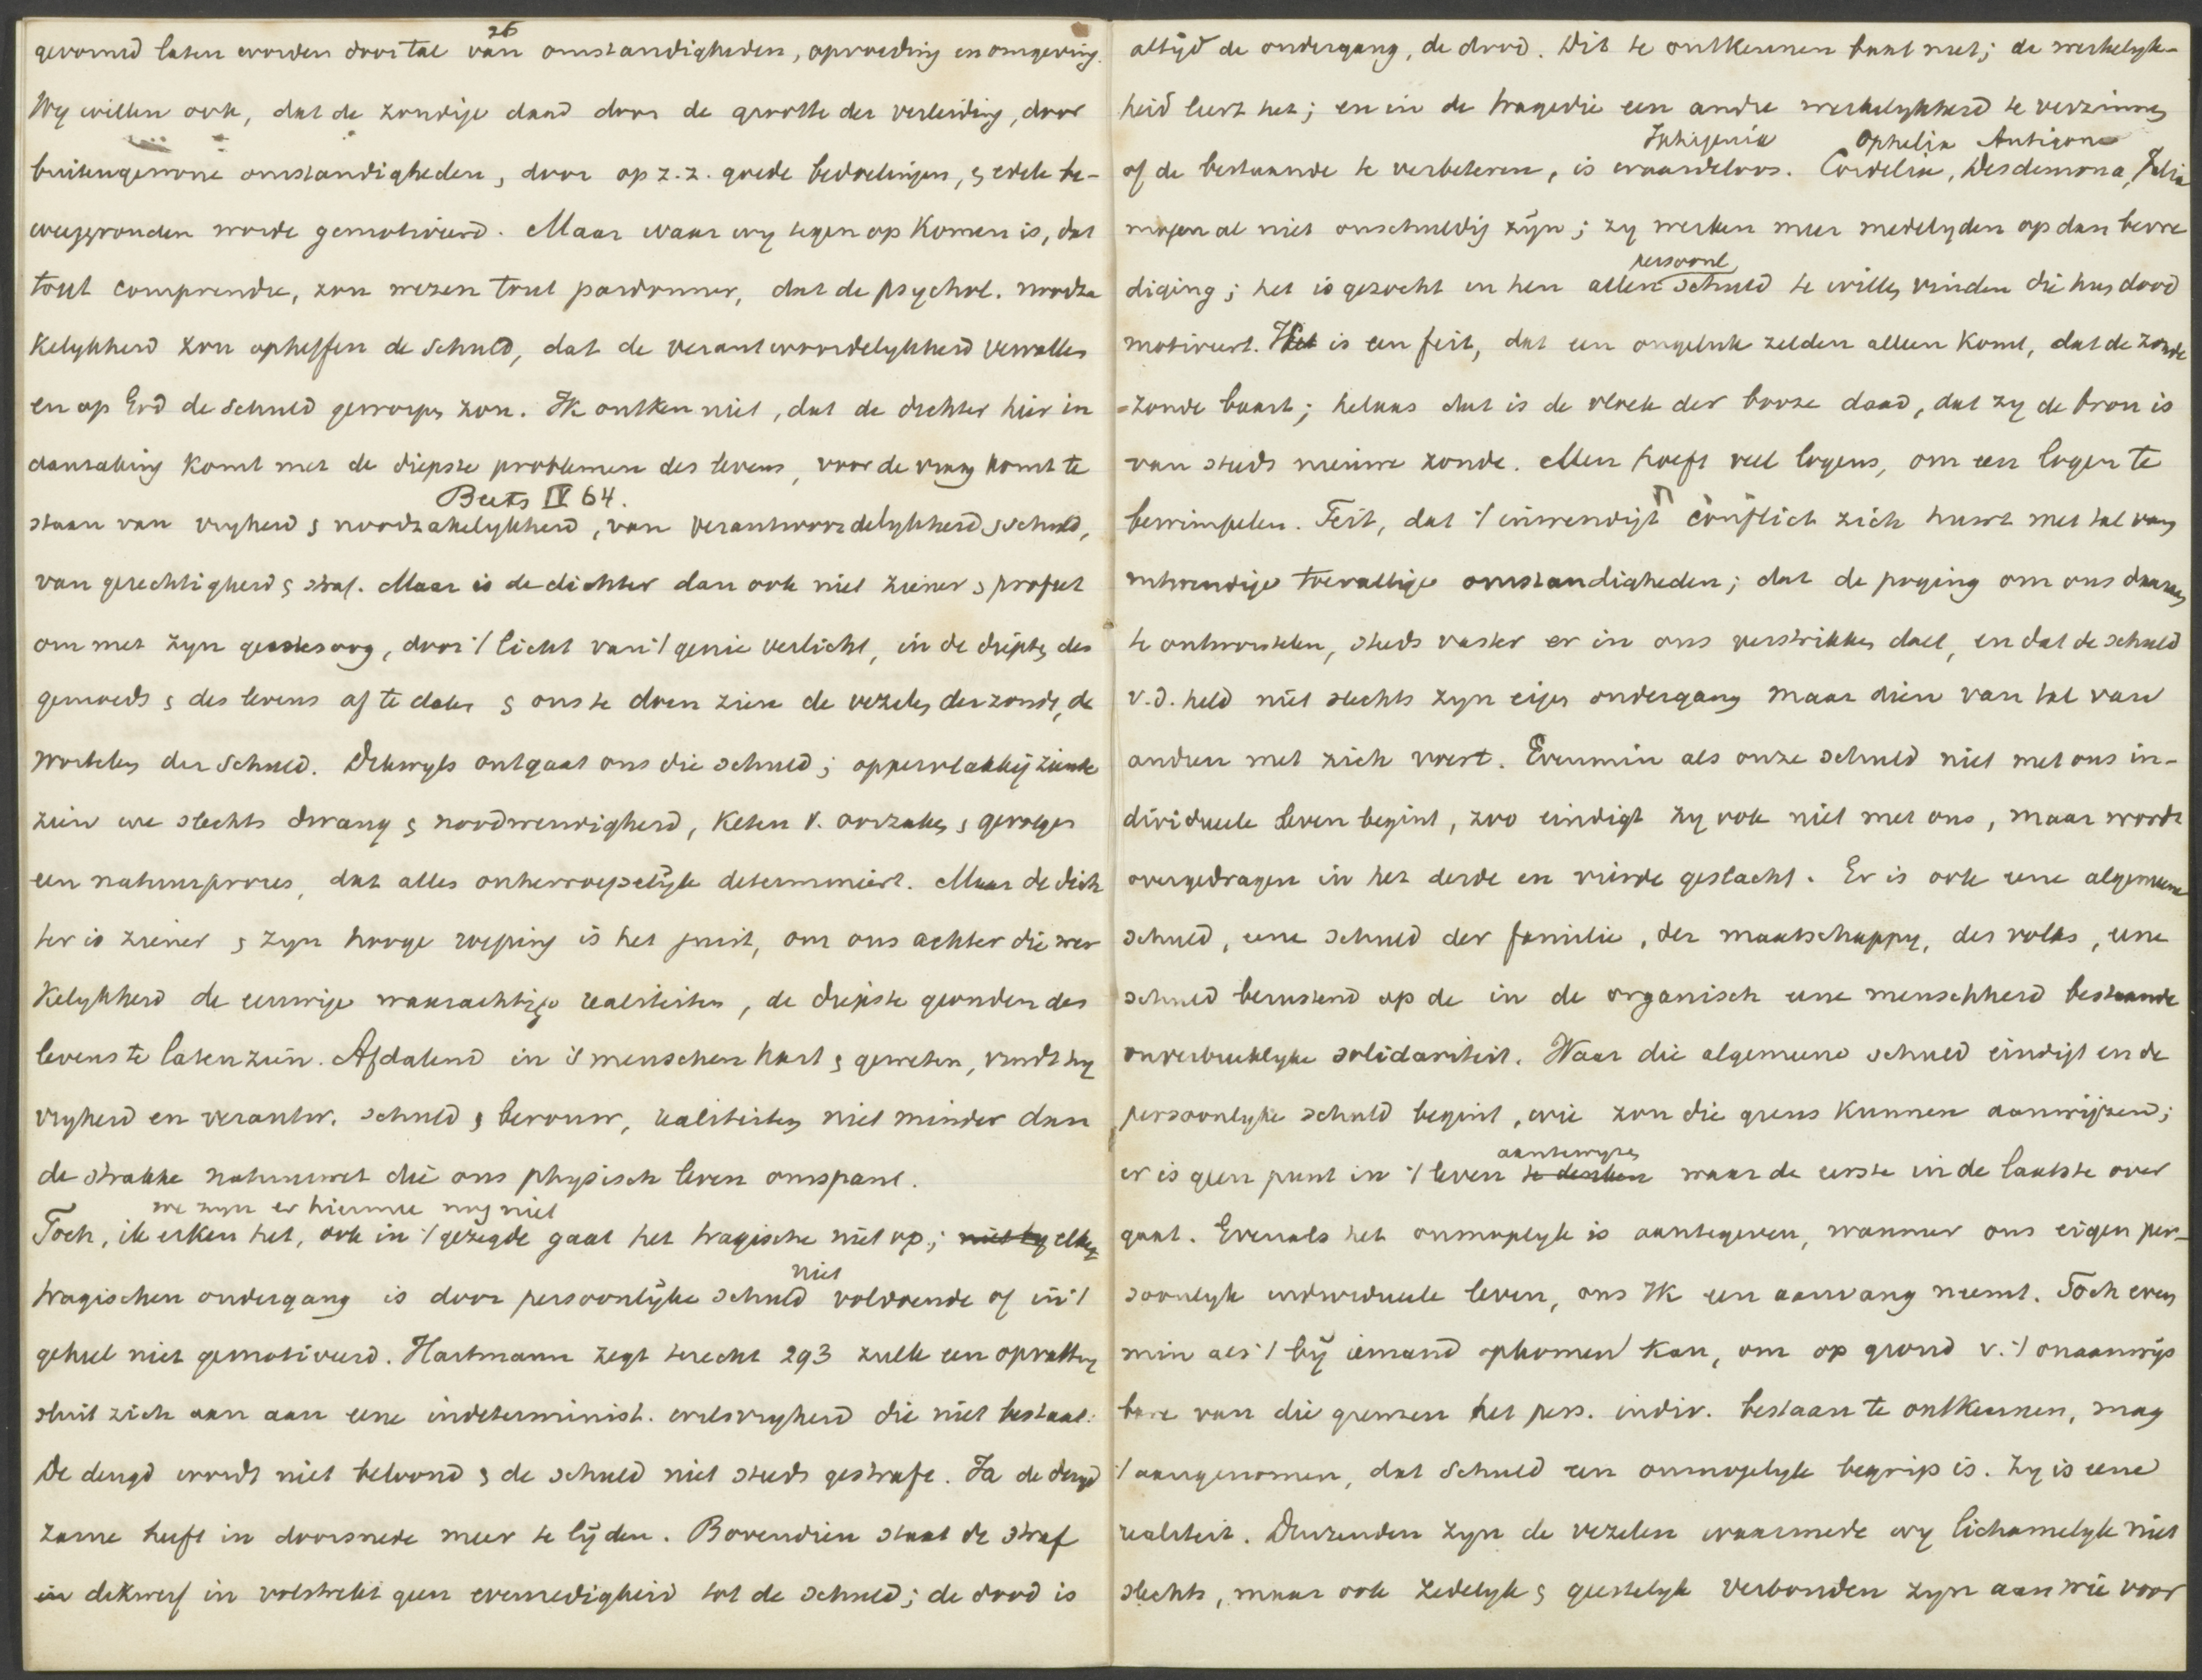 26
gevormd laten worden door tal van omstandigheden, opvoeding en omgeving.
Wy willen ook, dat de zondige daad door de grootte der verleiding, door
buitengewone omstandigheden, door op z.z. goede bedoelingen, & edele be-
weeggronden worde gemotiveerd. Maar waar wy tegen op komen is, dat
tout comprendre, zou wezen tout pardonner, dat de psychol. noodza
kelykheid zou opheffen de schuld, dat de verantwoordelykheid vervallen
en op God de schuld geworpen zou. Ik ontken niet, dat de dichter hier in
aanraking komt met de diepste problemen des levens, voor de vraag komt te
Beets IV 64.
staan van vryheid & noodzakelykheid, van verantwoordelykheid & schuld,
van gerechtigheid & straf. Maar is de dichter dan ook niet ziener & profeet
om met zyn geestesoog, door 't licht van 't genie verlicht, in de diepten des
gemoeds & des levens af te dalen & ons te doen zien de vezelen der zonde, de
wortelen der schuld. Dikwyls ontgaat ons die schuld; oppervlakkig ziende
zien we slechts dwang & noodwendigheid, keten v. oorzaken & gevolgen
een natuurproces, dat alles onherroepelijk determineert. Maar de dich
ter is ziener & zyn hooge roeping is het juist, om ons achter die wer
kelykheid de eeuwige waarachtige realiteiten, de diepste gronden des
levens te laten zien. Afdalend in 's menschen hart & geweten, vindt hy
vryheid en verantw. schuld & berouw, realiteiten niet minder dan
de strakke natuurwet die ons physisch leven omspant.
we zyn er hiermee nog niet
Toch, ik erken het, ook in 't gezegde gaat het tragische niet op; niet by elken
niet
tragischen ondergang is door persoonlijke schuld voldoende of in 't
geheel niet gemotiveerd. Hartmann zegt terecht 293 zulk een opvatting
sluit zich aan aan eene indeterminist. wilsvryheid die niet bestaat.
De deugd wordt niet beloond & de schuld niet steeds gestraft. Ja de deugd
zame heeft in doorsnede meer te lijden. Bovendien staat de straf
in dikwerf in volstrekt geen evenredigheid tot de schuld; de dood is
altijd de ondergang, de dood. Dit te ontkennen baat niet; de werkelyk-
heid leert het; en in de tragedie een andre werkelykheid te verzinnen
Iphigenia Ophelia Antigone
of de bestaande te verbeteren, is waardeloos. Cordelia, Desdemona, Julia
mogen al niet onschuldig zijn; zy wekken meer medelyden op dan bevre
persoonl
diging; het is gezocht in hen allen schuld te willen vinden die hun dood
motiveert. Het is een feit, dat een ongeluk zelden alleen komt, dat de zonde
zonde baart; helaas dat is de vloek der booze daad, dat zy de bron is
van steeds nieuwe zonde. Men hoeft veel logens, om een logen te
bewimpelen. Feit, dat 't inwendige conflict zich huwt met tal van
uitwendige toevallige omstandigheden; dat de poging om ons daaraan
te ontworstelen, steeds vaster er in ons verstrikken doet, en dat de schuld
v.d. held niet slechts zyn eigen ondergang maar dien van tal van
andren met zich voert. Evenmin als onze schuld niet met ons in-
dividueele leven begint, zoo eindigt zy ook niet met ons, maar wordt
overgedragen in het derde en vierde geslacht. Er is ook eene algemeene
schuld, eene schuld der familie, der maatschappy, des volks, eene
schuld berustend op de in de organisch eene menschheid bestaande
onverbreeklyke solidariteit. Waar die algemeene schuld eindigt en de
persoonlyke schuld begint, wie zou die grens kunnen aanwijzen;
aantewyzen
er is geen punt in 't leven te denken waar de eerste in de laatste over
gaat. Evenals het onmogelyk is aantegeven, wanneer ons eigen per-
soonlyk individueele leven, ons Ik een aanvang neemt. Toch even
min als 't bij iemand opkomen kan, om op grond v. 't onaanwijs
bare van die grenzen het pers. indiv. bestaan te ontkennen, mag
't aangenomen, dat schuld een onmogelyk begrip is. Zy is eene
realiteit. Duizenden zyn de vezelen waarmede wy lichamelyk niet
slechts, maar ook zedelyk & geestelyk verbonden zyn aan wie voor